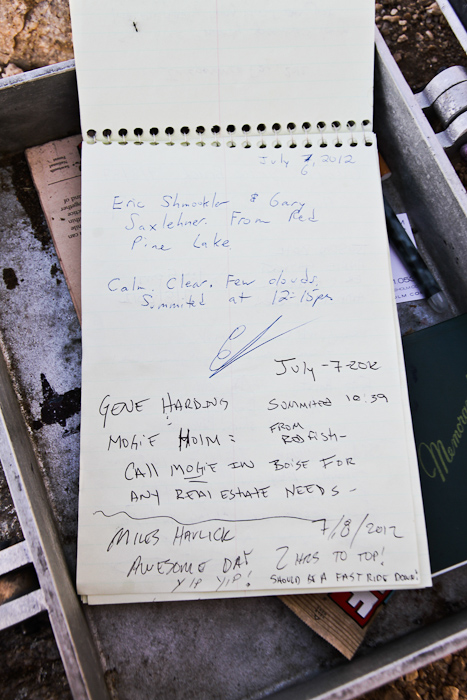 July 6, 2012
Eric Shmookler & Gary
Saxlehner. From Red
Pine Lake
Calm, Clear. Few clouds.
Summited at 12:15pm
July-7-2012
GENE HARDING SUMMITED 10:39
MOGIE HOLM: FROM REDFISH-
CALL MOGIE IN BOISE FOR
ANY REAL ESTATE NEEDS-
MILES HAVLICK 7/8/2012
AWESOME DAY 2 HRS TO TOP!
YIP YIP! SHOULD BE A FAST RIDE DOWN!
Memoran